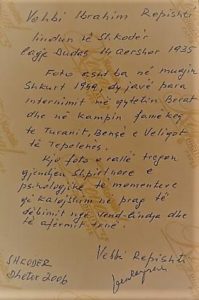 Vehbi Ibrahim Repishti
lindun në Shkodër
lagje Dudas 14 Qershor 1935
Foto është ba në muajin
Shkurt 1949, dy javë para
internimit në qytetin Berat
dhe në kampin famëkeq
të Turanit, Bençë e Veliqot
të Tepelenës.
Kjo foto e rrallë tregon
gjendjen shpirtnore e
psikologjike të momenteve
që kalojshim në prag të
dëbimit nga vend-lindja dhe
të afërmit tonë.
Vehbi Repishti
SHKODER
Dhetor 2006